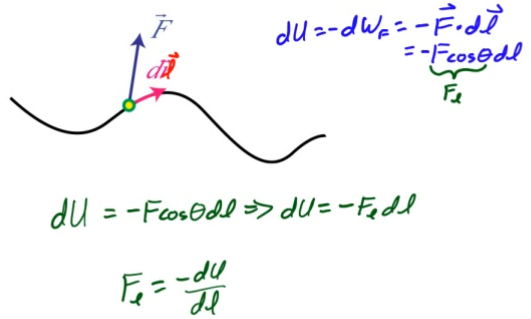 F⃗
dl⃗
dU = -dW_F = -F⃗·dl⃗
= -Fcosθdl
F_l
dU = -Fcosθdl => dU = -F_l dl
F_l = -dU/dl